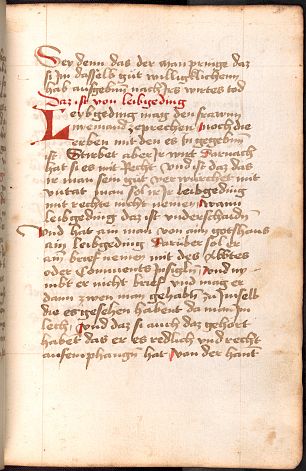 Seÿ denn das der man pringe daz
si Im dasselb gut willigklichenn
hab aufgebenn nach Irs wirtes tod
Daz ist von leibgeding
Leybgeding mag den frawen
niemand sprechen noch die
erben mit den es In gegeben
ist Stirbet aber Ir wirt Darnach
hat si es mit Recht Und ist das das
ir man sein gut
nutat man sol ir Ir leibgeding
mit rechte nicht nemen wann
leibgeding daz ist underschaidn
Und hat ain man von aim gotshaus
ain leibgeding Darüber sol er
ain brief nemen mit des Abbtes
oder Convents Insigln Und ny
mbt er nicht brief und mag er
dann zwen man gehabn zu Im selb
die es gesehen habent da man Im
lech Und daz si auch daz gehort
habet das er es redlich und recht
aufemphangn hat von der hant